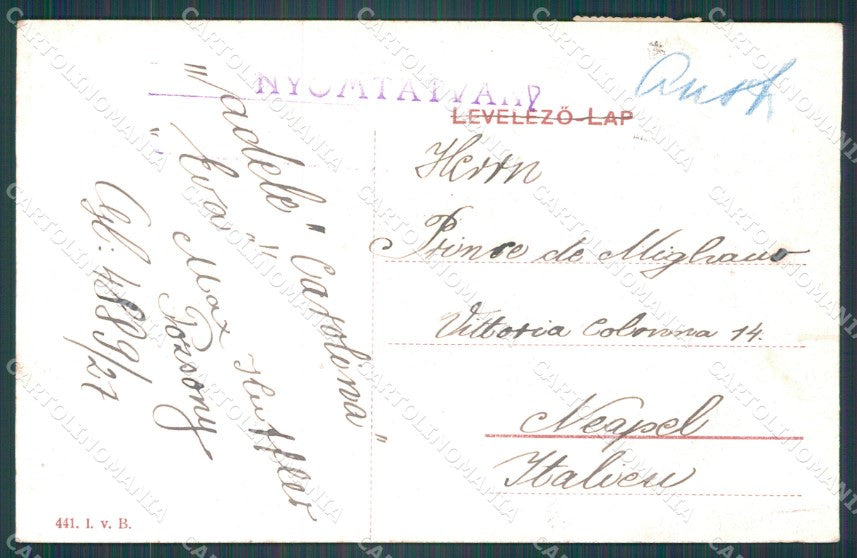 NYOMTATVÁNY
LEVELEZŐ-LAP
"Adele" "Carolina"
"Eva"
Max
Pozsony
Cgl: 4889/27
Herrn
Prince de Migliano
Vittoria Colonna 14.
Neapel
Italien
441. I. v. B.
CARTOLINOMANIA